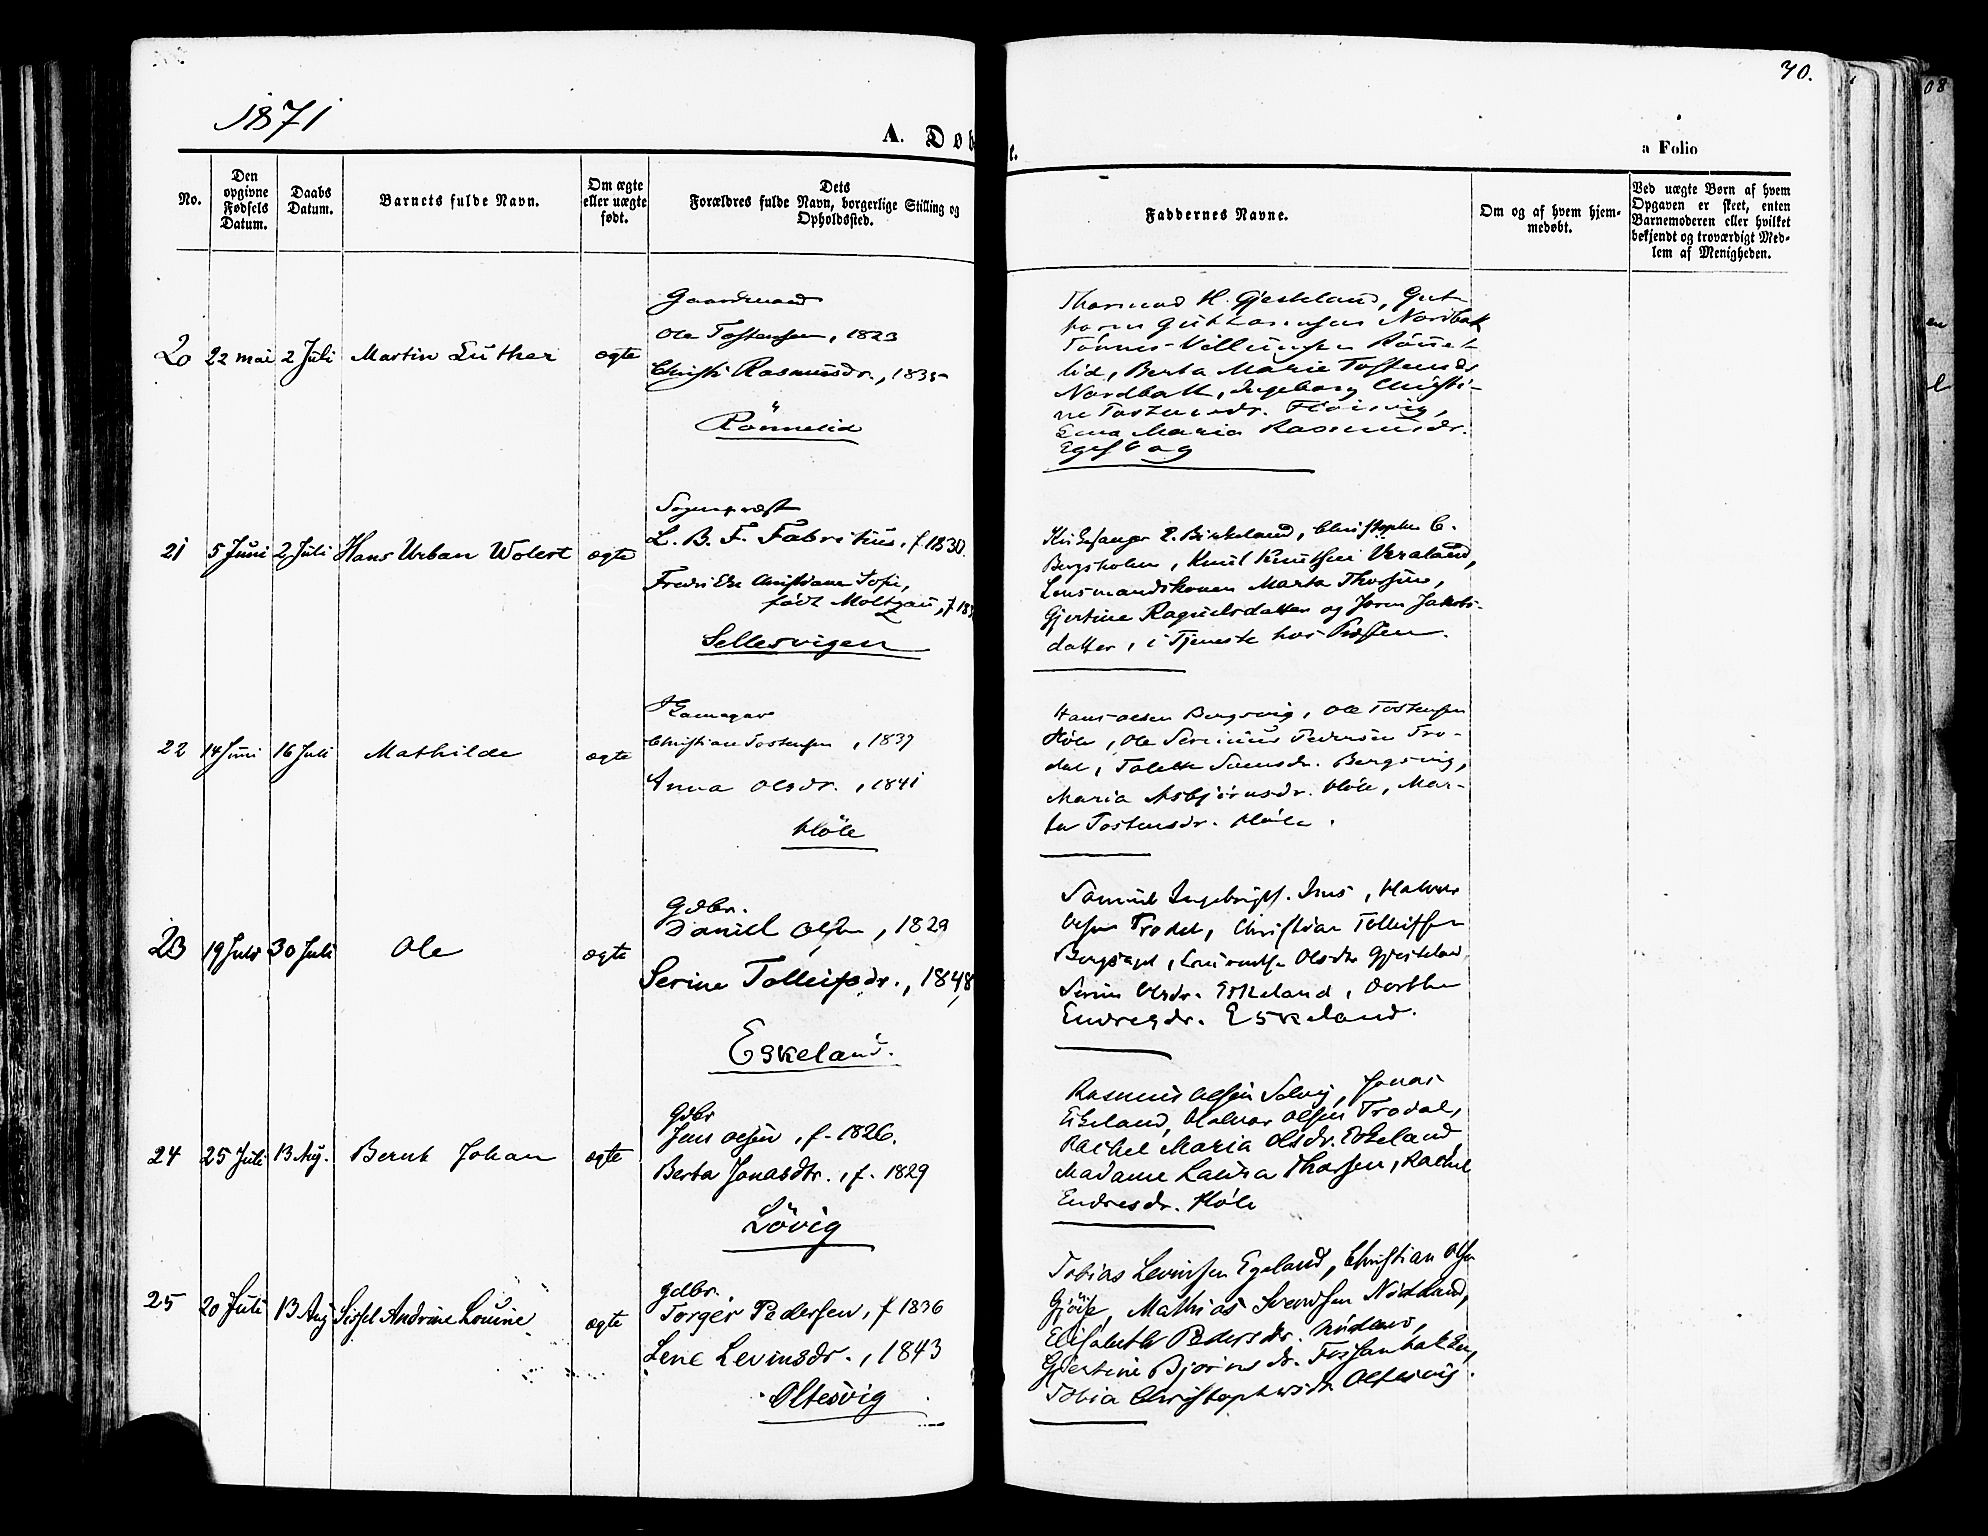 1871
A. Dob
e.
70.
a Folio
No.
Den opgivne Fødsels Datum.
Daabs Datum.
Barnets fulde Navn.
Om ægte eller uægte født.
Dets Forældres fulde Navn, borgerlige Stilling og Opholdssted.
Faddernes Navne.
Om og af hvem hjemmedøbt.
Ved uægte Børn af hvem Opgaven er skeet, enten Barnemoderen eller hvilket bekjendt og troværdigt Medlem af Menigheden.
20 22 mai 2 Juli Martin Luther ægte
Gaardmand
Ole Tostensen, 1823
Christi Rasmusdr., 1835
Rönnelid
Nordbak
lid, Berta Marie Tostensdr
Nordbakk, Ingeborg Christi-
ne Tostensdr.
Maria Rasmusdr.
21 5 Juni 2 Juli Hans Urban Wolert ægte
Sognepræst
L. B. F. Fabritius, f. 1830.
Fredrikke Christiane Sofie,
født Moltzau, f 183
Sellesvigen
Kirkesanger P. Birkeland, Christopher C.
Bergsholm, Knut Knutsen Veraland,
Lensmandskonen Marta Thorsen,
Gjertine Raguelsdatter og Joren Jakobs-
datter, i Tjeneste hos Præsten.
22 14 Juni 16 Juli Mathilde ægte
Christian Tostensen, 1839
Anna Olsdr., 1841
Höle
Hans Olsen Bergsvig, Ole Tostensen
Höle, Ole Severinus Pedersen Tro-
dal, Bergsvig,
Maria Asbjörnsdr. Höle, Mar-
ta Tostensdr. Höle.
23 19 Juli 30 Juli Ole ægte
Gdbr.
Daniel Olsen, 1829
Serine Tolleifsdr., 1848,
Eskeland.
Samuel Ingebrigts. Halvor
Olsen Trodal, Christian Tolleifsen
Olsdr
Serine Olsdr. Eskeland, Dorthe
Endresdr. Eskeland.
24 25 Juli 13 Aug. Bernt Johan ægte
Gdbr
Jens Olsen, f. 1826.
Berta Jonasdtr., f. 1829
Lövig
Rasmus Olsen Solvig, Jonas
Eskeland, Halvor Olsen Trodal,
Rachel Maria Olsdr. Eskeland
Madame Laura Thorsen, Rachel
Endresdr. Höle
25 20 Juli 13 Aug Sissel Andrine Louine ægte
Gdbr.
Torger Pedersen, f 1836
Lene Levinsdr., 1843
Oltesvig
Tobias Levinsen Egeland, Christian Olsen
Mathias Svendsen Nödland,
Elisabeth Pedersdr. Nödland,
Gjertine Bjørnsdr. Fossanbakken,
Tobia Christophersdr Oltesvig.